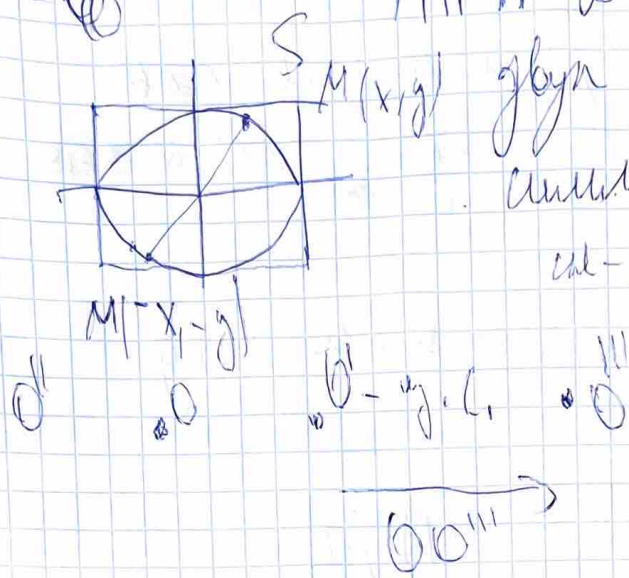 S
M(x,y) двух
симм
M(-x,-y)
O'' .O .O' - ц.с, .O'''
OO'''